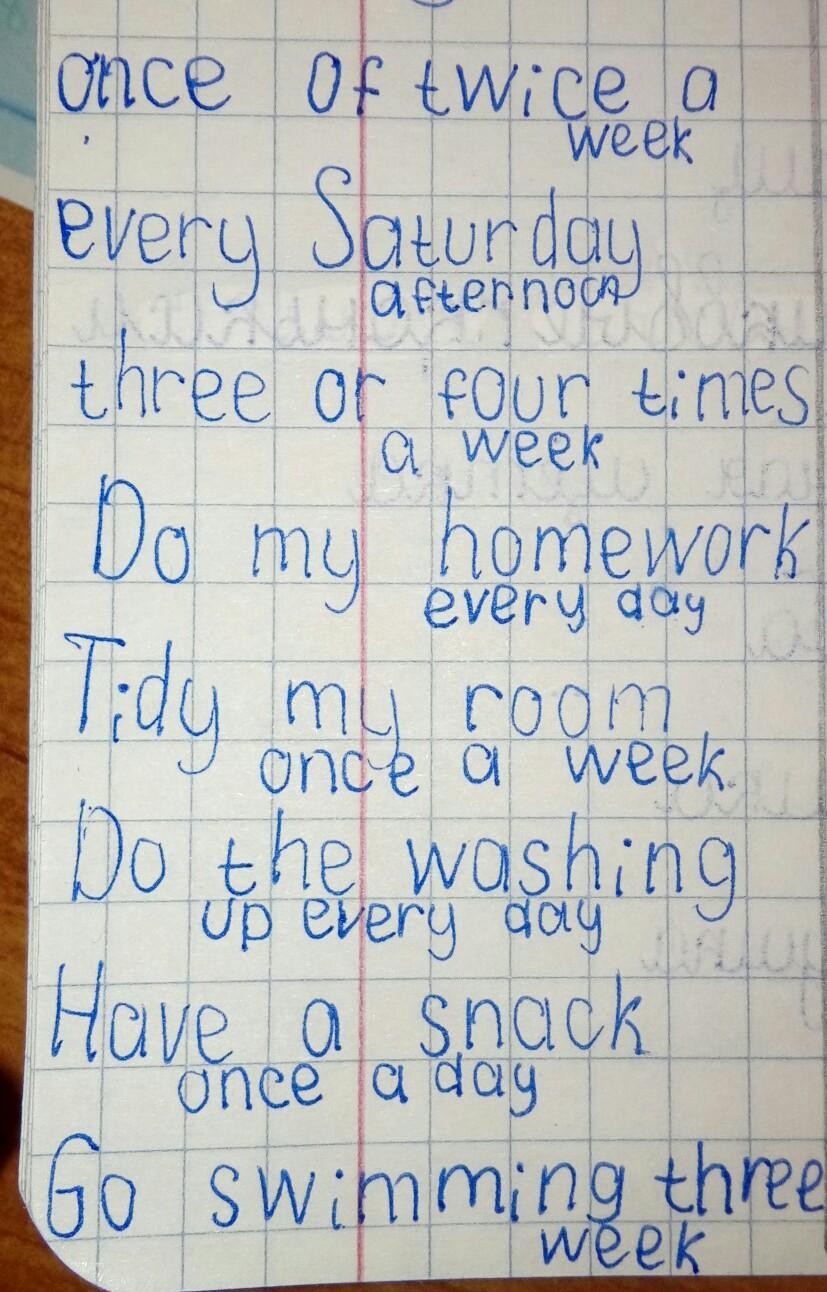 once of twice a
week
every Saturday
afternoon
three or four times
a week
Do my homework
every day
Tidy my room
once a week
Do the washing
up every day
Have a snack
once a day
Go swimming three
week